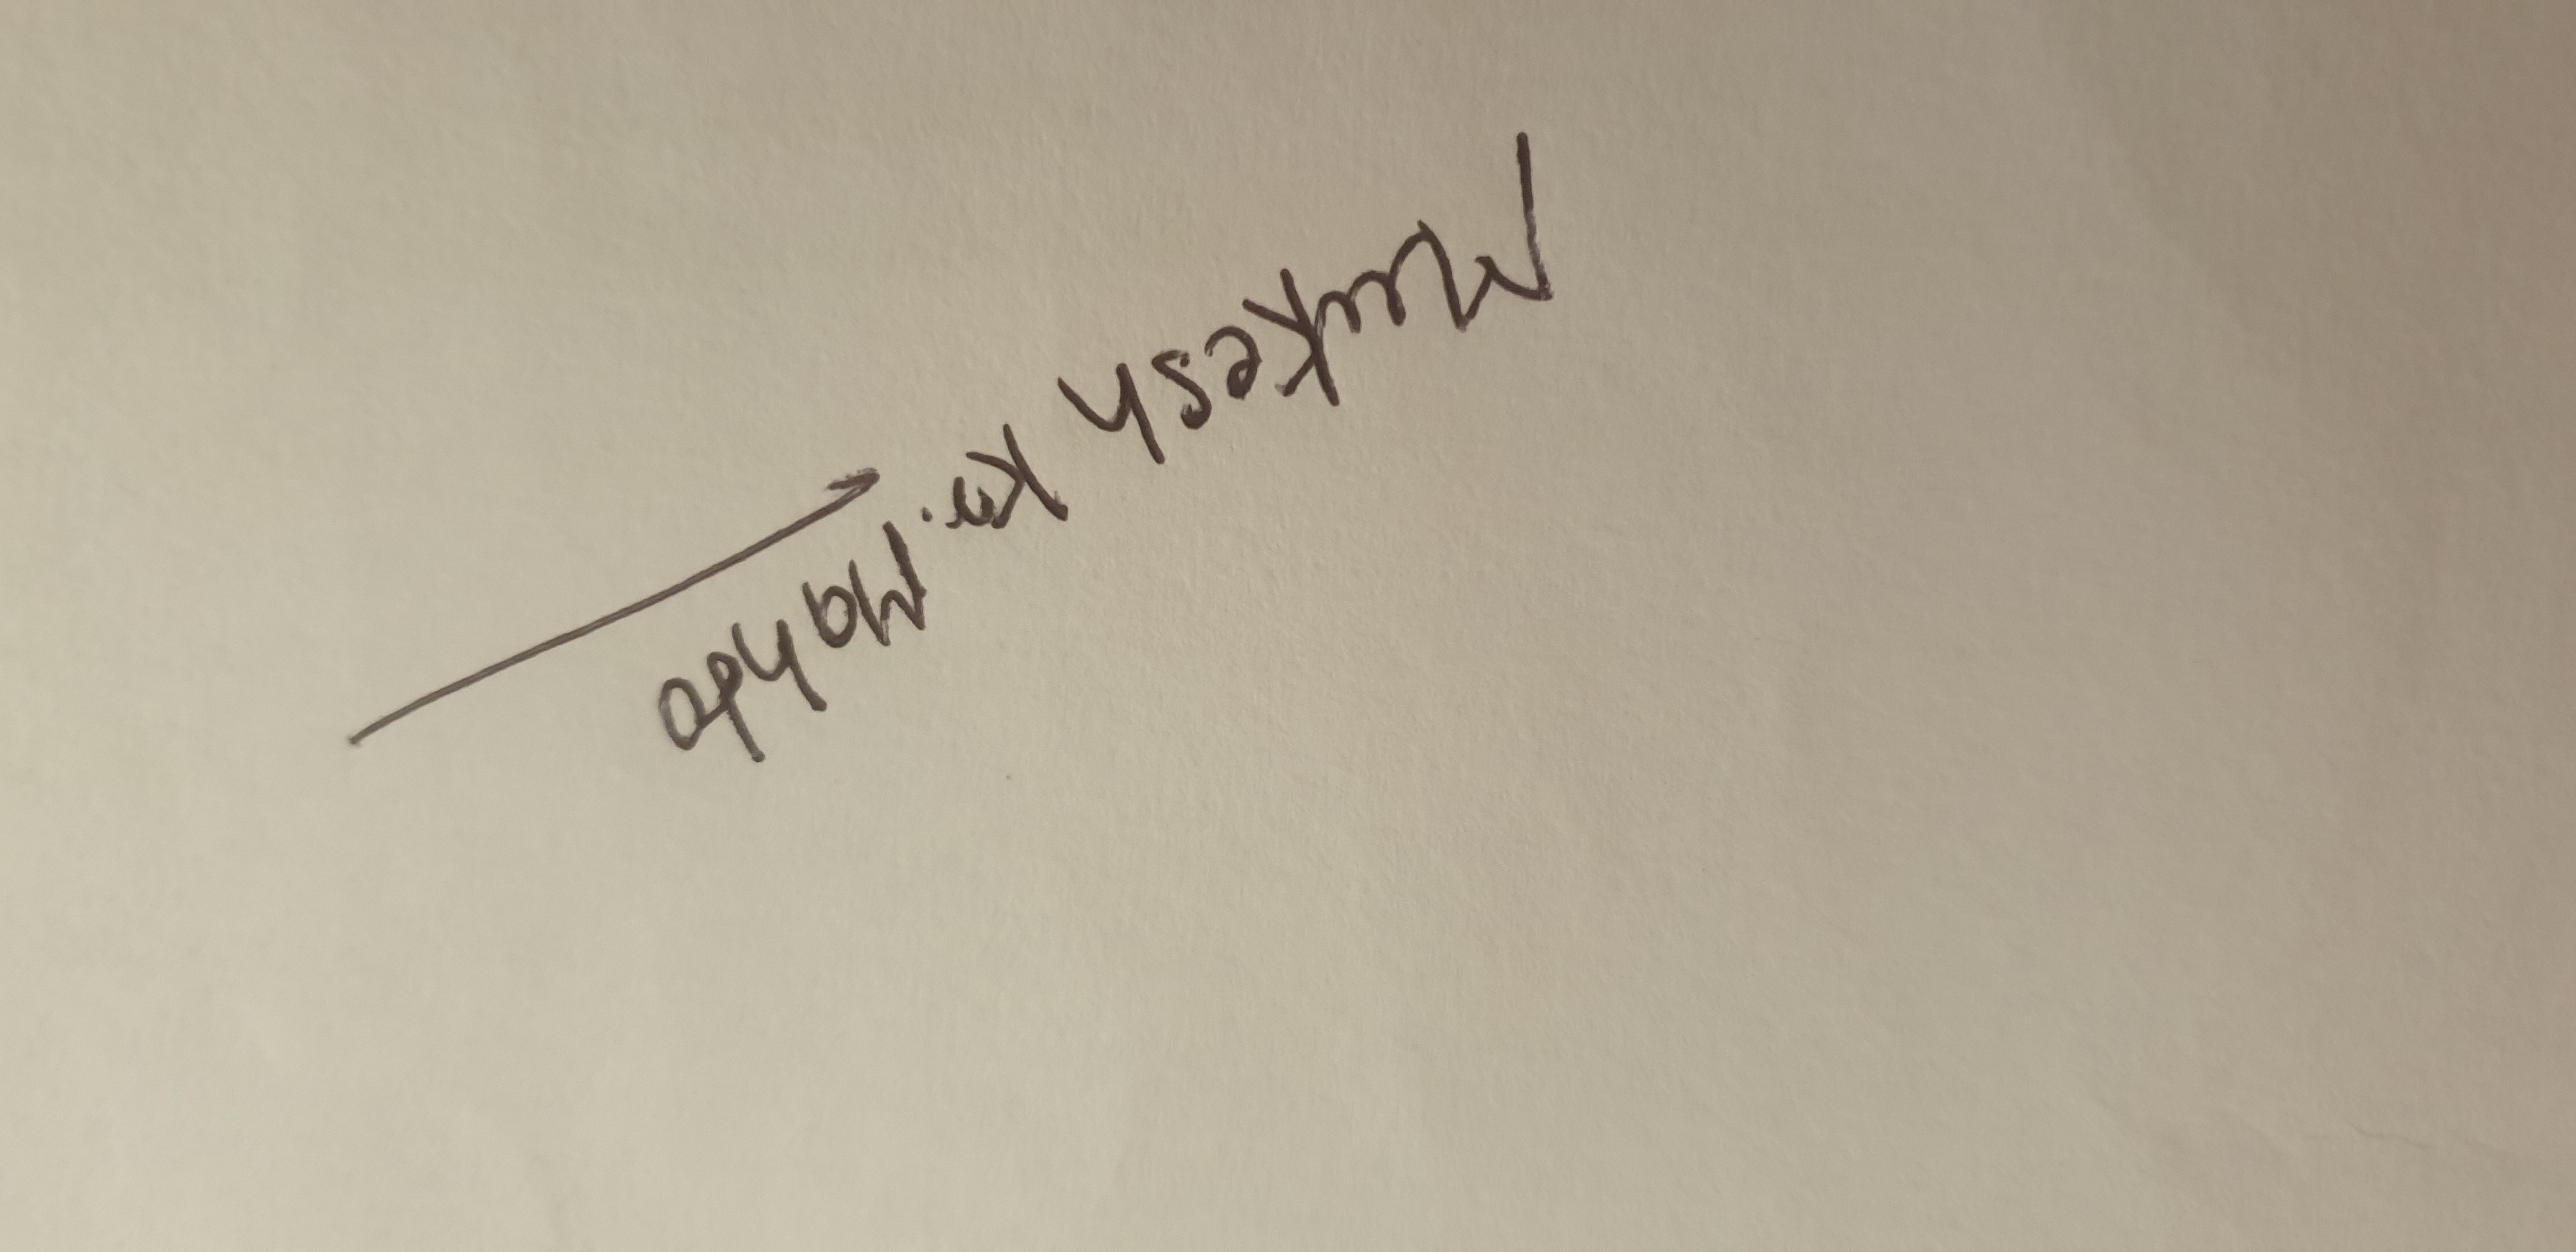 Mukesh Kr. Mahto